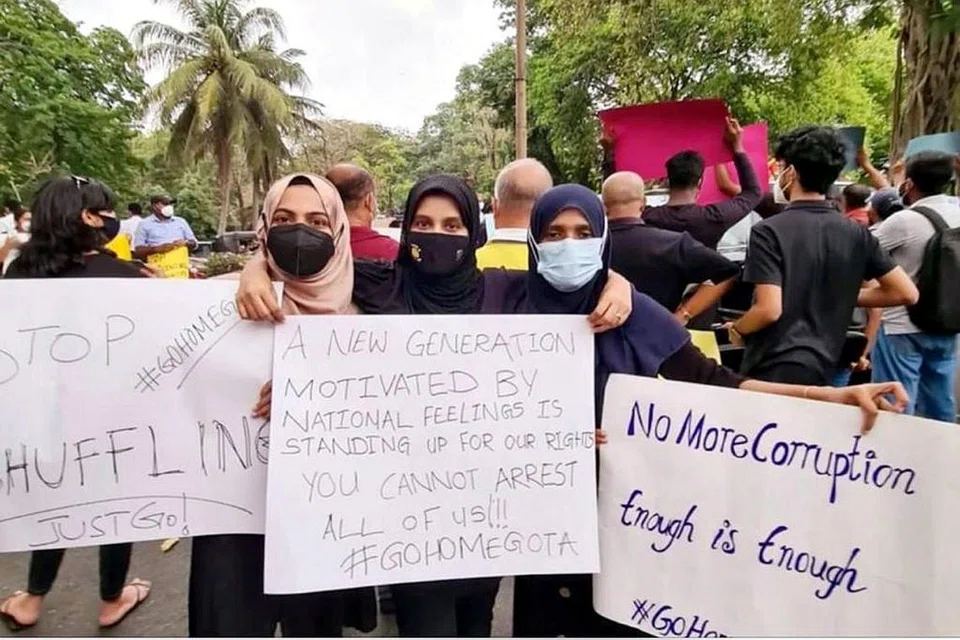 STOP
#GOHOMEG
SHUFFLING
JUST GO!
A NEW GENERATION
MOTIVATED BY
NATIONAL FEELINGS IS
STANDING UP FOR OUR RIGHTS
YOU CANNOT ARREST
ALL OF US!!!
#GOHOMEGOTA
No More Corruption
Enough is Enough
#GoHo